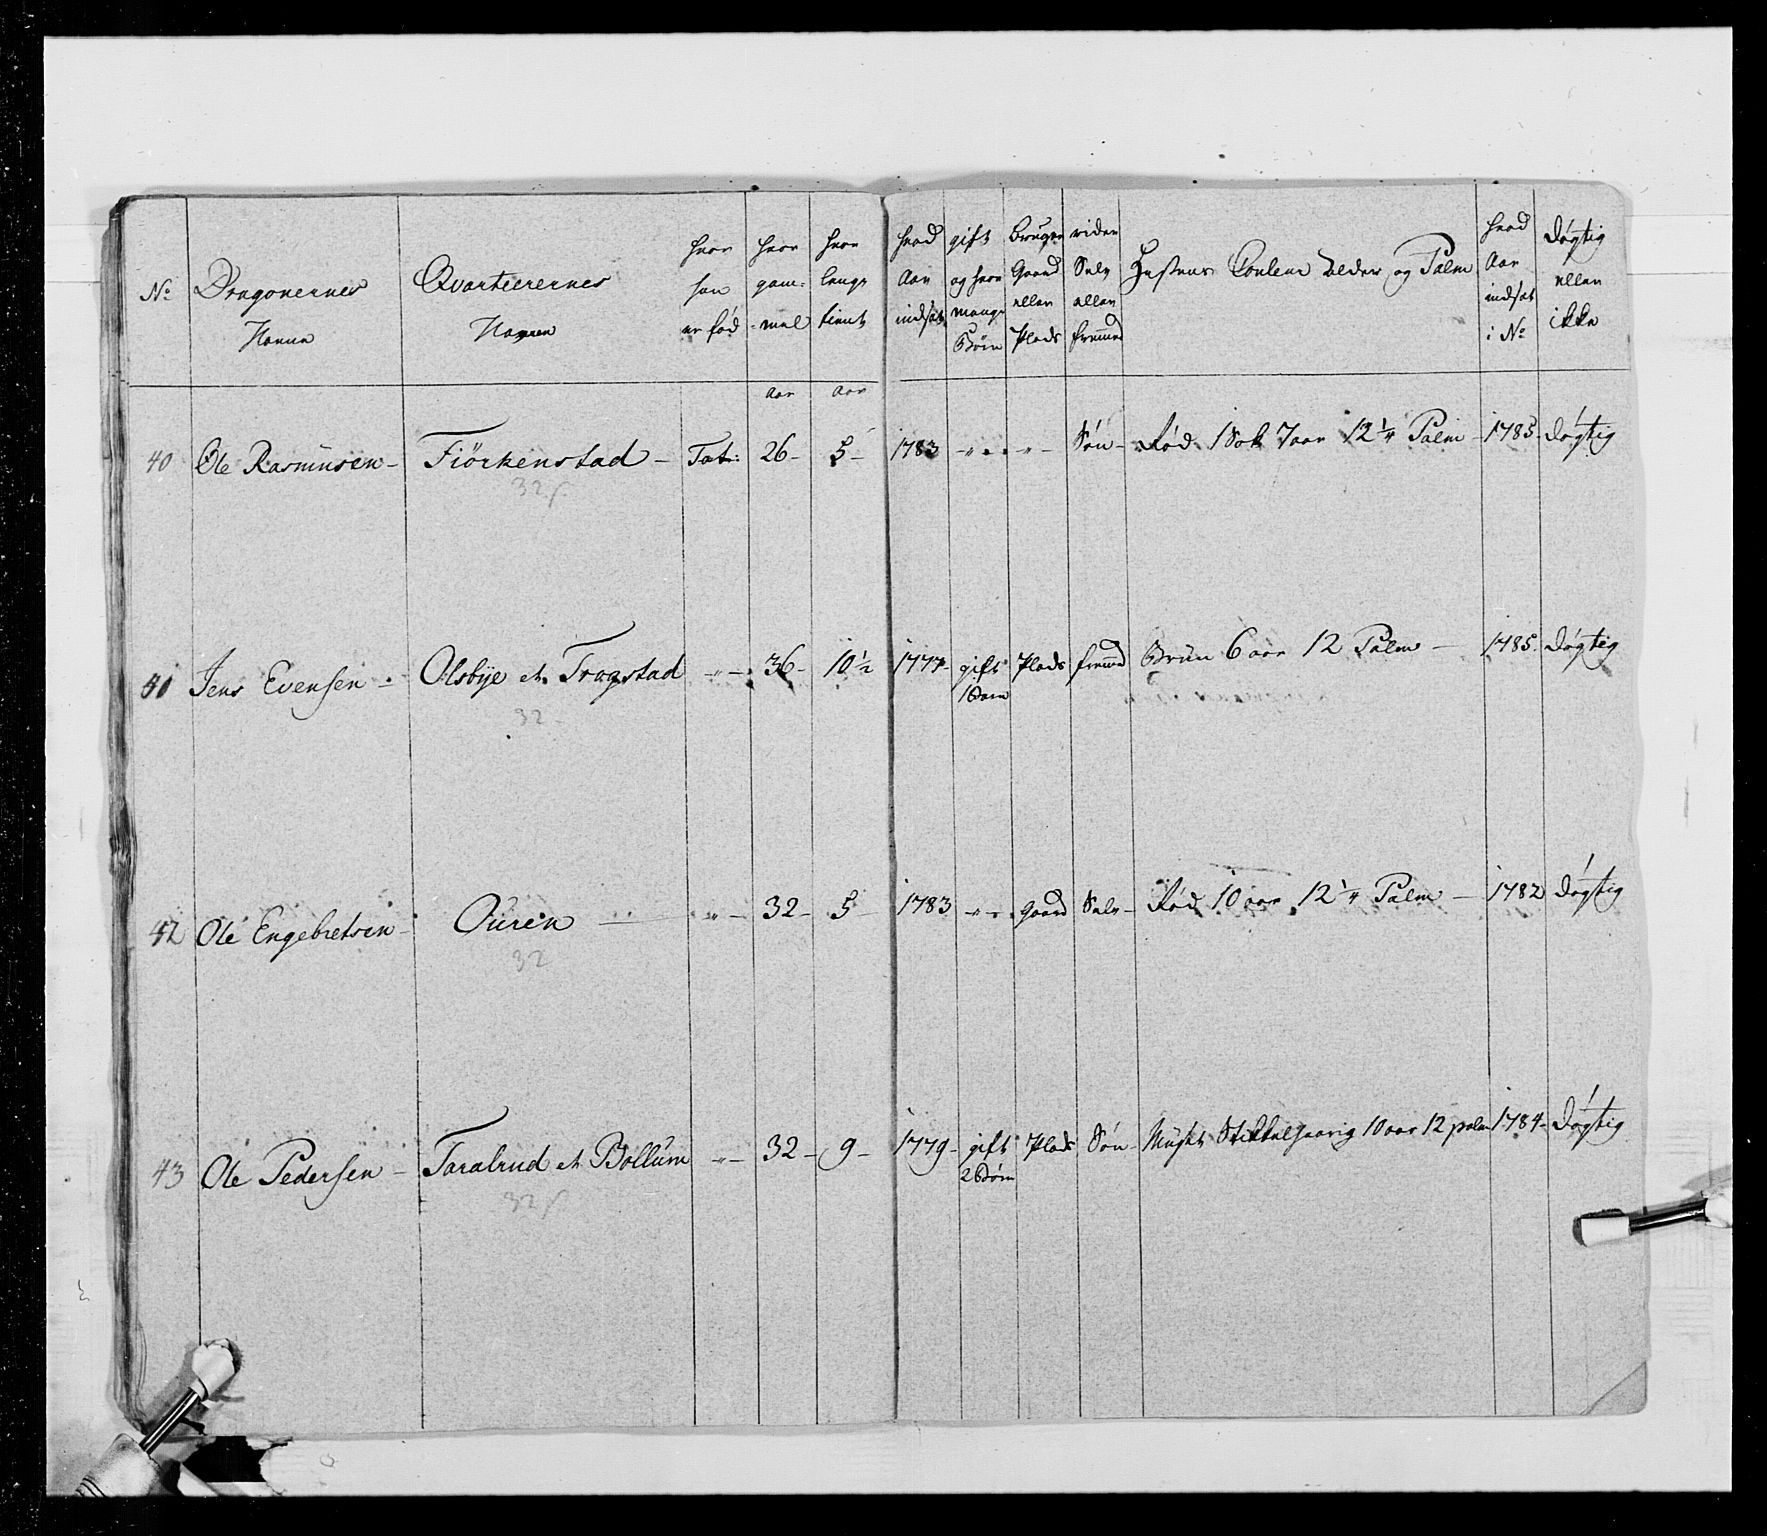 No Dragonernes Navne Qvarteerernes Navne hvor han er fød hvor gam-mel hvor lenge tient hvad Aar indsat gift og hvor mange Børn bruger Gaard eller Plads rider Selv eller fremmed Hestens Couleur Alder og Palm hvad Aar indsat i No døgtig eller ikke
Aar Aar
40 Ole Rasmusen - Fiörkenstad - Tot: 26 - 5 - 1783 - " - - " - Søn - Rød 1 Sok 7 aar 12 1/4 Palm - 1785 - døgtig
32 f
41 Jens Evensen - Olsbye et Trogstad - " - 36 - 10 1/2 1777 - gift Plads fremmed Brun 6 aar 12 Palm - 1785 - døgtig
1 Barn
32 -
42 Ole Engebretsen - Ouren - - " - 32 - 5 - 1783 - " - Gaard Selv - Rød 10 aar 12 1/4 Palm - 1782 døgtig
32
43 Ole Pedersen - Taralrud et Bollum - " - 32 - 9 - 1779 - gift Plads Søn - Muskt Stikkelhaarig 10 aar 12 palm 1784 - døgtig
2 Børn
32 f